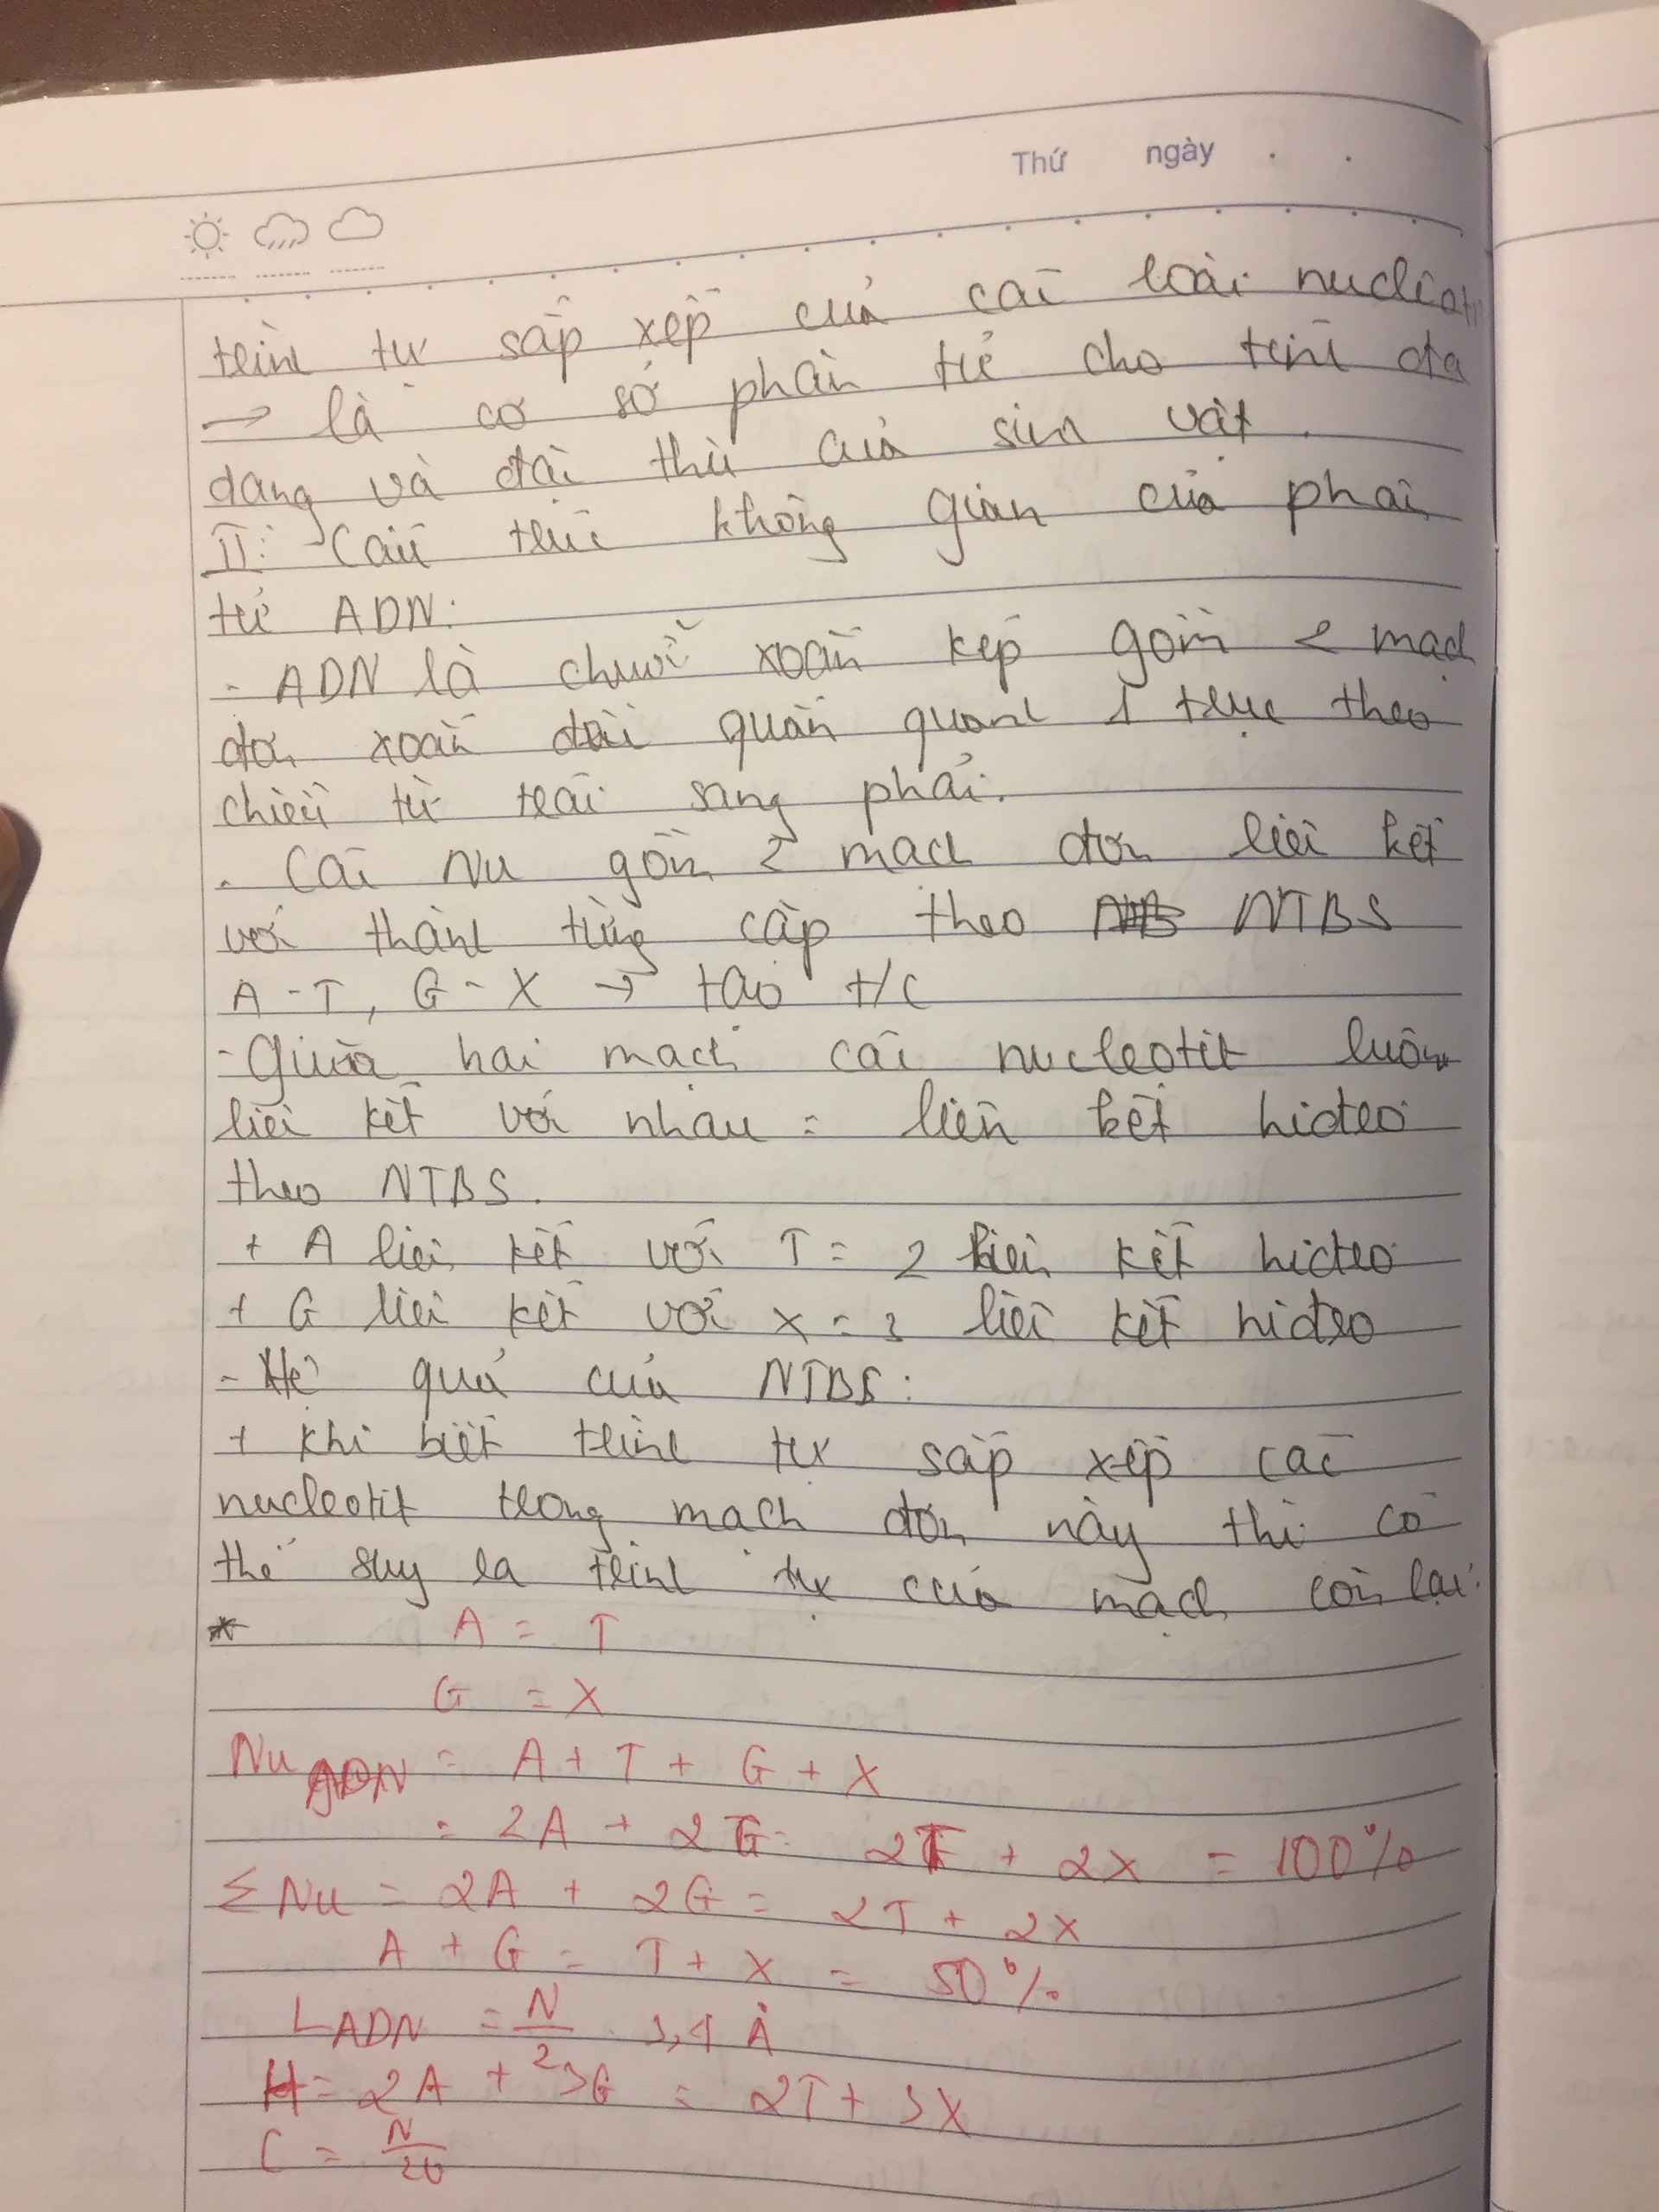 Thứ ngày
trình tự sắp xếp của các loài nucleoti
→ là cơ sở phân tử cho tính đa
dạng và đặc thù của sinh vật.
II: Cấu trúc không gian của phân
tử ADN:
- ADN là chuỗi xoắn kép gồm 2 mạch
đơn xoắn đều quấn quanh 1 trục theo
chiều từ trái sang phải.
- Các Nu gồm 2 mạch đơn liên kết
với thành từng cặp theo NTBS
A-T, G-X → tạo t/c
- Giữa hai mạch các nucleotit luôn
liên kết với nhau = liên kết hidro
theo NTBS.
+ A liên kết với T = 2 liên kết hidro
+ G liên kết với X = 3 liên kết hidro
- Hệ quả của NTBS:
+ khi biết trình tự sắp xếp các
nucleotit trong mạch đơn này thì có
thể suy ra trình tự của mạch còn lại.
* A = T
G = X
Nu ADN = A + T + G + X
= 2A + 2G = 2T + 2X = 100%
Σ Nu = 2A + 2G = 2T + 2X
A + G = T + X = 50%
L ADN = N/2 . 3,4 Å
H = 2A + 3G = 2T + 3X
C = N/20